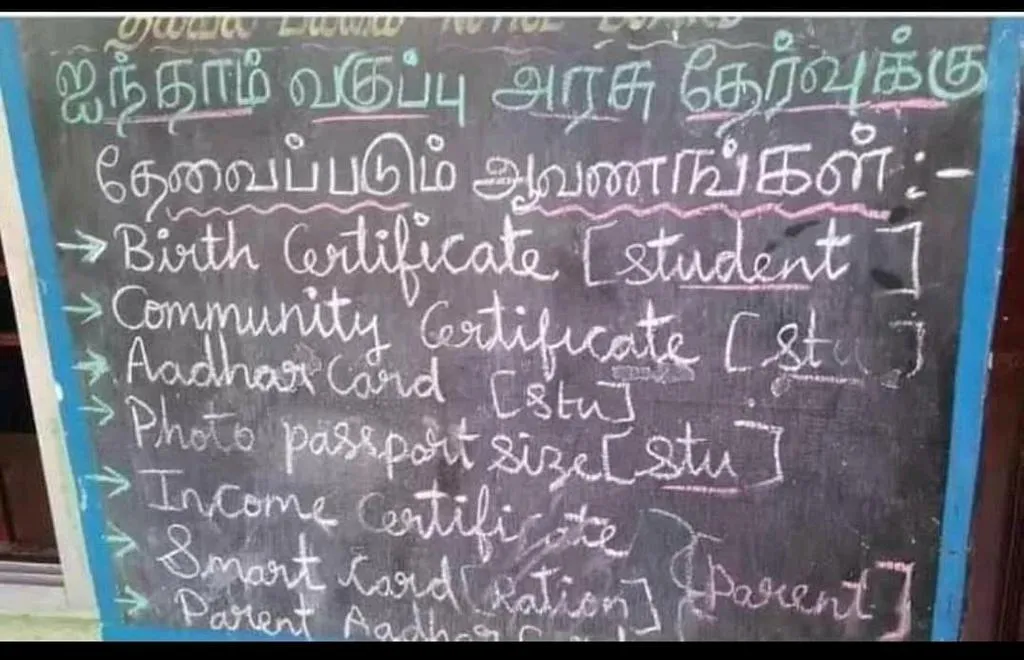 ஐந்தாம் வகுப்பு அரசு தேர்வுக்கு
தேவைப்படும் ஆவணங்கள் :-
→ Birth Certificate [student]
→ Community Certificate [stu]
→ Aadhar Card [stu]
→ Photo passport size [stu]
→ Income Certificate
→ Smart Card [Ration] { Parent]
→ Parent Aadhar Card